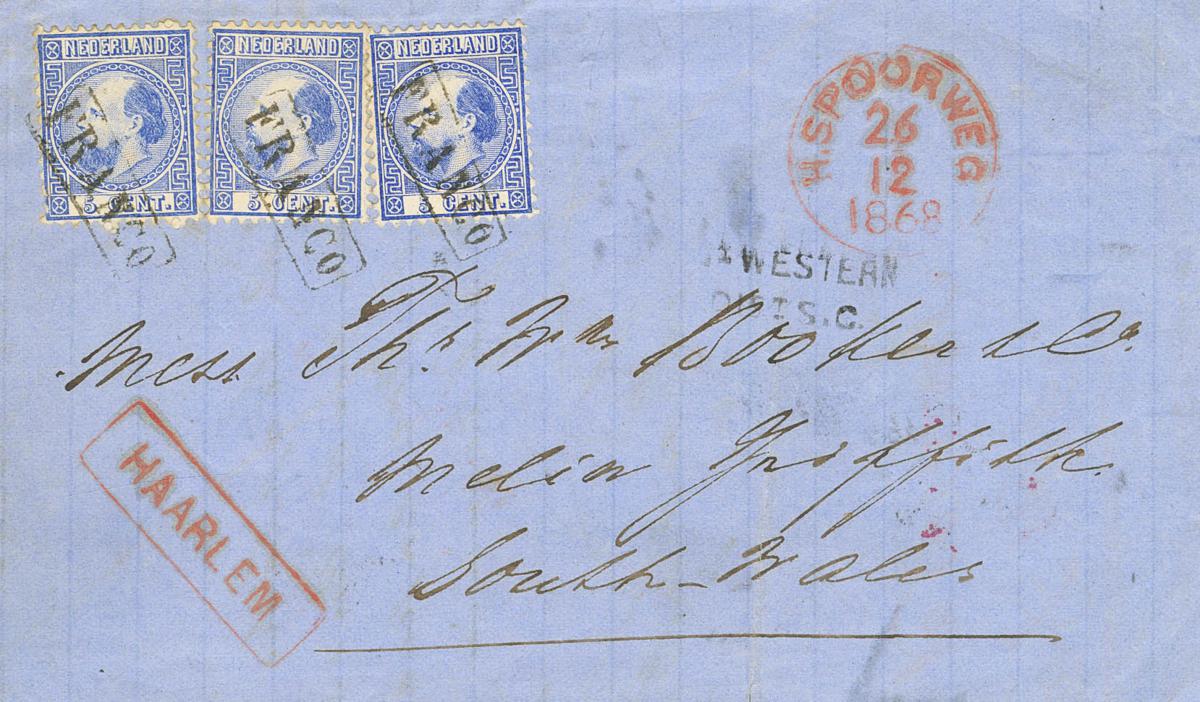 NEDERLAND NEDERLAND NEDERLAND
FRANCO FRANCO FRANCO
5 CENT. 5 CENT. 5 CENT.
H.SPOORWEG
26
12
1868
WESTERN
S.C.
Mess Ths. Wm Booker & Co.
Melin Griffith.
South-Wales
HAARLEM